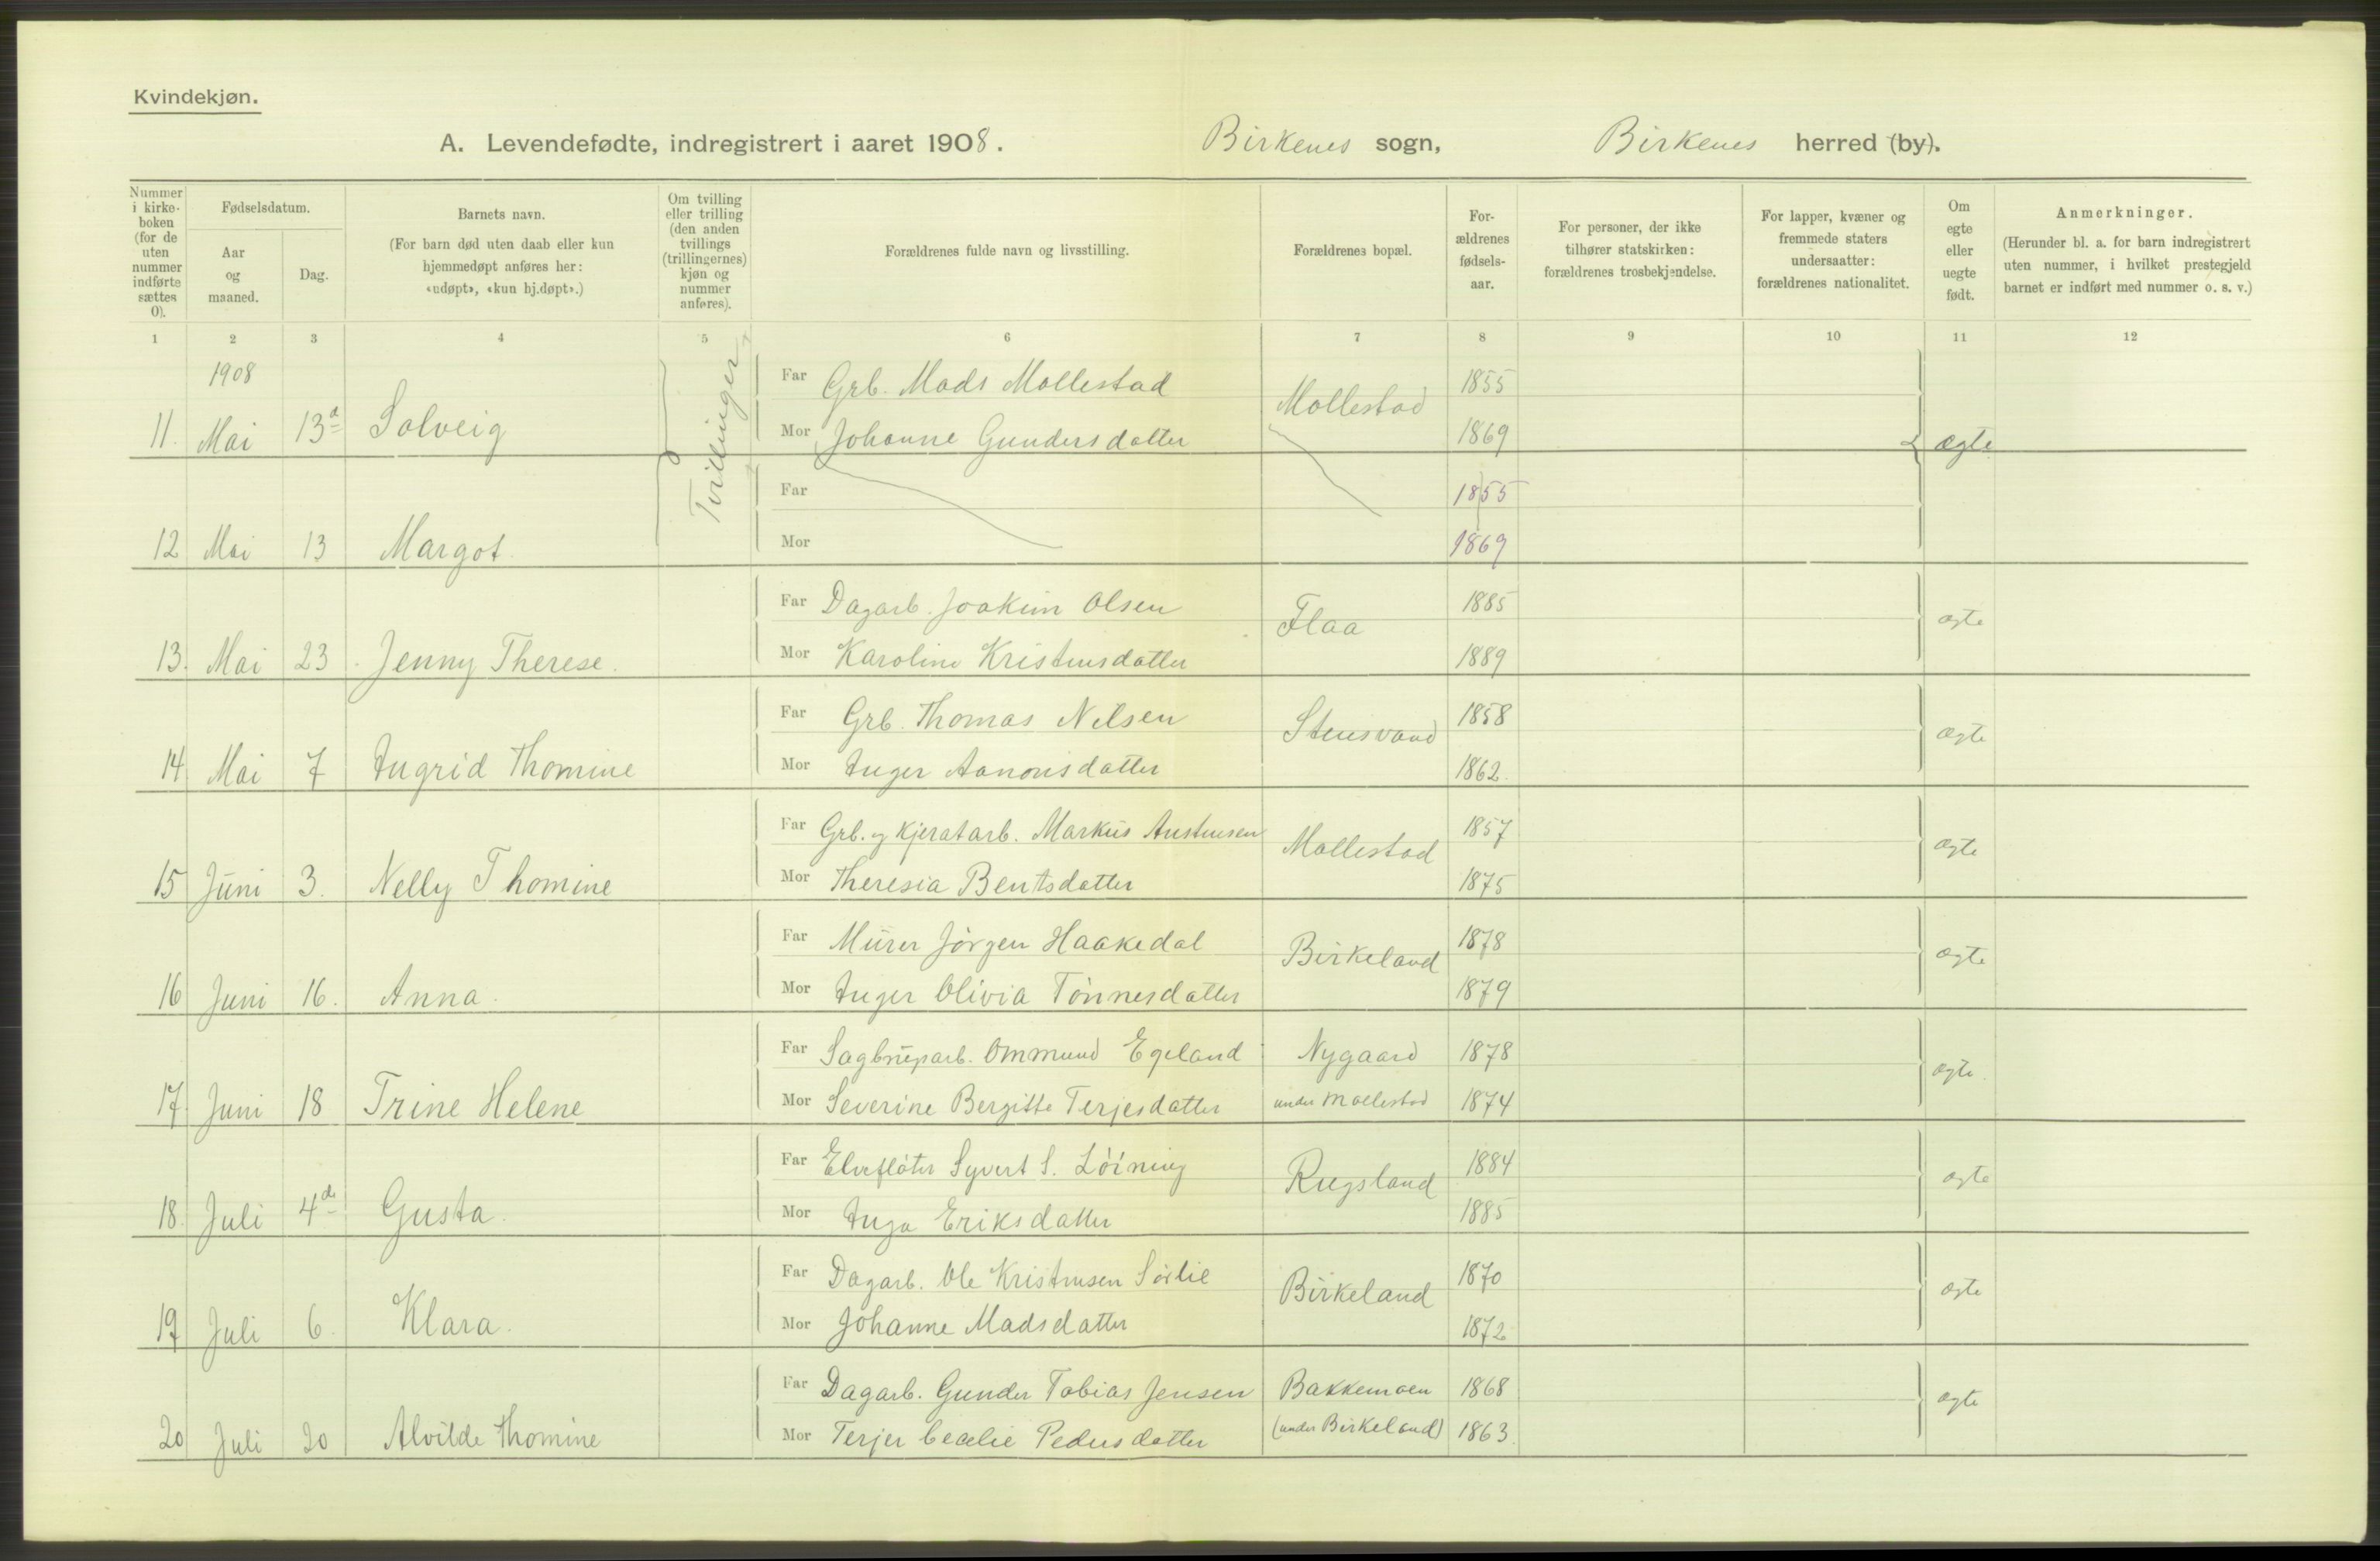 Kvindekjøn.
A. Levendefødte, indregistrert i aaret 1908. Birkenes sogn, Birkenes herred (by).
Nummer i kirke-boken (for de uten nummer indførte sættes 0).
Fødselsdatum.
Aar og maaned.
Dag.
Barnets navn.
(For barn død uten daab eller kun hjemmedøpt anføres her: «udøpt», «kun hj.døpt».)
Om tvilling eller trilling (den anden tvillings (trillingernes) kjøn og nummer anføres).
Forældrenes fulde navn og livsstilling.
Forældrenes bopæl.
For-ældrenes fødsels-aar.
For personer, der ikke tilhører statskirken: forældrenes trosbekjendelse.
For lapper, kvæner og fremmede staters undersaatter: forældrenes nationalitet.
Om egte eller uegte født.
Anmerkninger.
(Herunder bl. a. for barn indregistrert uten nummer, i hvilket prestegjeld barnet er indført med nummer o. s. v.)
1 2 3 4 5 6 7 8 9 10 11 12
1908
Far Grb. Mads Mollestad Mollestad 1855
11. Mai 13d Solveig Tvillinger Mor Johanne Gundersdatter 1869 ægte
Far 1855
12 Mai 13 Margot. Mor 1869
Far Dagarb. Joakim Olsen Flaa 1885 ægte
13. Mai 23 Jenny Therese. Mor Karoline Kristensdatter 1889
Far Grb. Thomas Nilsen Stensvand 1858 ægte
14 Mai 7 Ingrid Thomine Mor Inger Aanonsdatter 1862.
Far Grb. og Kjeratarb. Markus Austensen Mollestad 1857 ægte
15 Juni 3. Nelly Thomine Mor Theresia Bentsdatter 1875
Far Murer Jörgen Haakedal Birkeland 1878 ægte
16 Juni 16. Anna. Mor Inger Olivia Tönnesdatter 1879
Far Sagbrugsarb. Ommund Egeland Nygaard 1878 ægte
17. Juni 18 Trine Helene Mor Severine Bergitte Terjesdatter under Mollestad 1874
Far Elvefløter Syvert S. Löining Rugsland 1884 ægte
18. Juli 4de Gusta. Mor Inga Eriksdatter 1885
Far Dagarb. Ole Kristensen Sörlie Birkeland 1870 ægte
19 Juli 6. Klara. Mor Johanne Madsdatter 1872
Far Dagarb. Gunder Tobias Jensen Bakkemoen 1868 ægte
20 Juli 20 Alvilde Thomine Mor Terjer Cecelie Pedersdatter (under Birkeland) 1863.